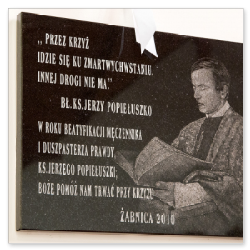 ,, PRZEZ KRZYŻ
IDZIE SIĘ KU ZMARTWYCHWSTANIU.
INNEJ DROGI NIE MA.”
BŁ.KS.JERZY POPIEŁUSZKO
W ROKU BEATYFIKACJI MĘCZENNIKA
I DUSZPASTERZA PRAWDY,
KS.JERZEGO POPIEŁUSZKI,
BOŻE POMÓŻ NAM TRWAĆ PRZY KRZYŻU.
ŻABNICA 2010